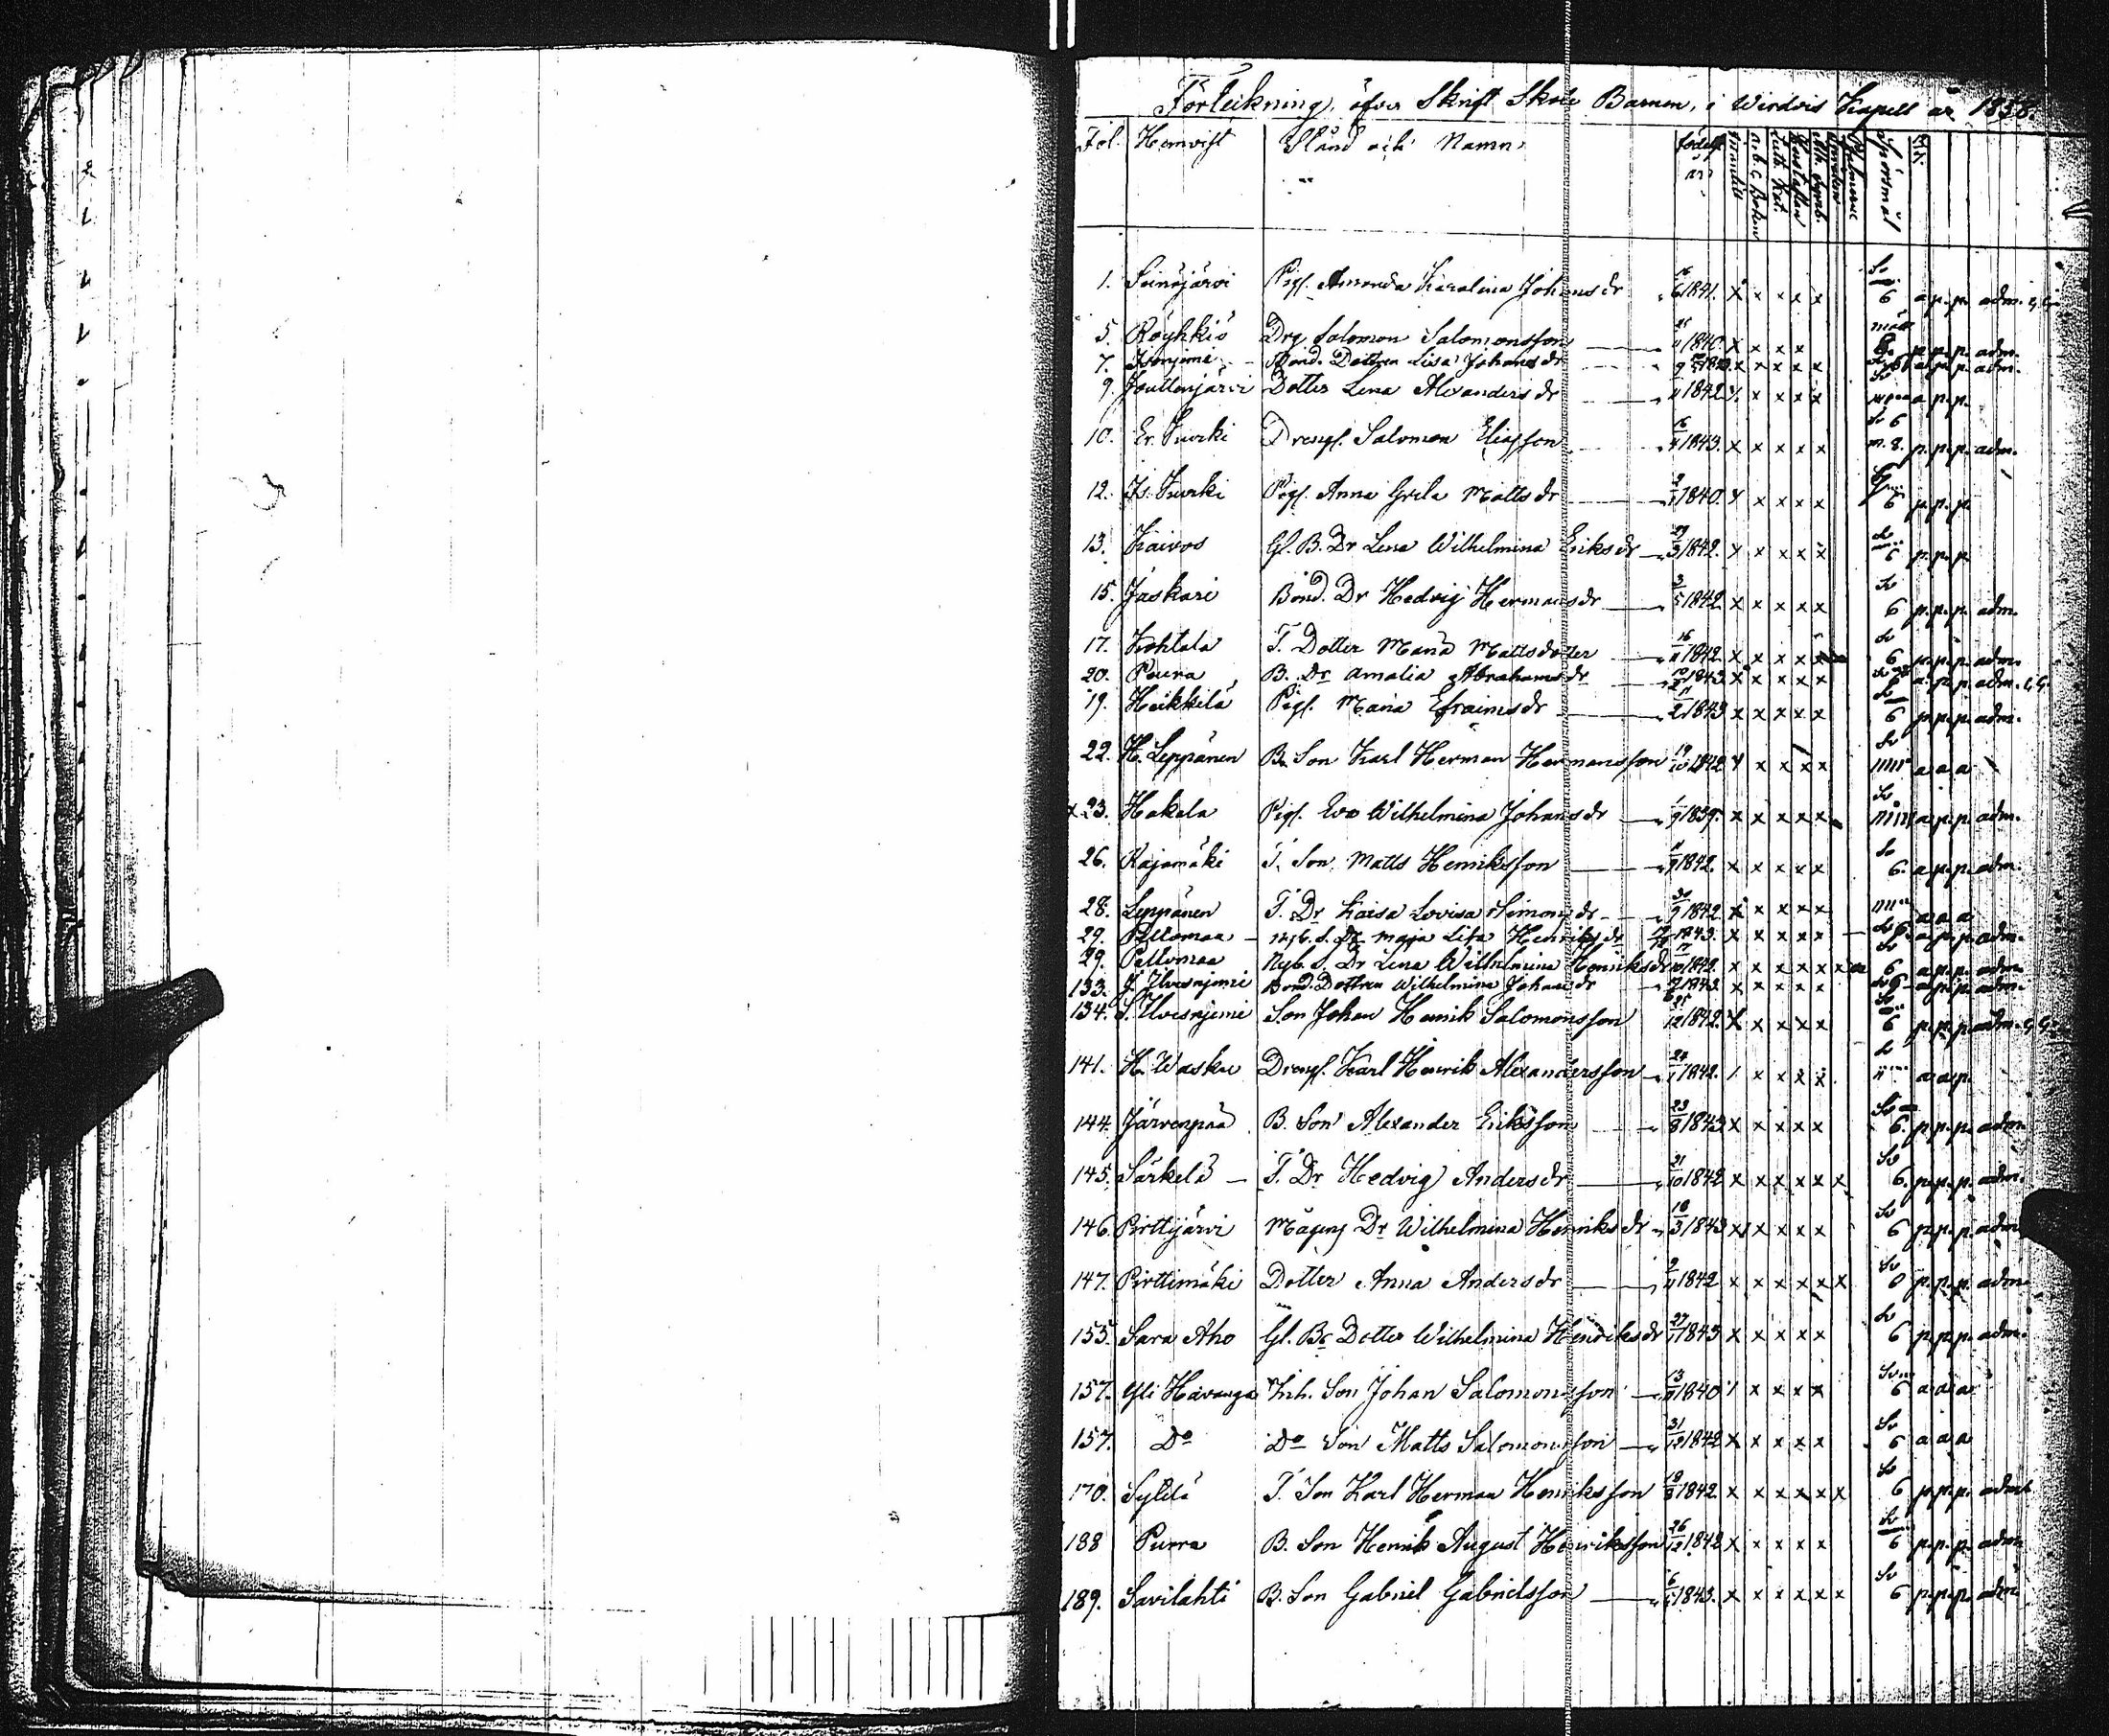 Förteckning öfver Skrift Skole Barnen i Wirdois Kapell år 1858.
Fol. Hemvist Stånd och Namn födelse år Innanläs a.b.c. Boken Luth. Kat. Hustaflan Ath. Symb. Spörsmål
1. Seinäjärvi Pigf. Amanda Karolina Johansdr 16/6 1841. x x x x x Sv 6 a. p. p. adm.
5. Röyhkiö Drg Salomon Salomonsson 1840 x x x x p. p. p. adm.
7. Bond. Dottren Lisa Johansdr x x x x x a. p. p. adm.
9. Jouttenjärvi Dotter Lena Alexandersdr 1842 x x x x x a. p. p.
10. Er. Turki Drengf. Salomon Eliasson 16/4 1843. x x x x x Sv 6 p. p. p. adm.
12. Is. Turki Pigf. Anna Greta Mattsdr 1840. x x x x x 6 p. p. p.
13. Kaivos Gl. B. Dr Lena Wilhelmina Eriksdr 27/3 1842. x x x x x 6 p. p. p.
15. Jäskari Bond. Dr Hedvig Hermansdr 3/5 1842 x x x x x Sv 6 p. p. p. adm.
17. Kohtala T. Dotter Maria Mattsdotter 16/11 1842 x x x x x Sv 6 p. p. p. adm.
20. Peura B. Dr Amalia Abrahamsdr 1843 x x x x x a. p. p. adm.
19. Heikkilä Pigf. Maria Efraimsdr 11/2 1843 x x x x x Sv 6 p. p. p. adm.
22. H. Leppänen B. Son Karl Herman Hermansson 19/10 1842 x x x x x Sv a a a
x 23. Hakola Pigf. Eva Wilhelmina Johansdr 1/9 1839. x x x x x Sv a. p. p. adm.
26. Rajamäki T. Son Matts Henriksson 1842. x x x x x Sv 6. a. p. p. adm.
28. Leppänen T. Dr Kaisa Lovisa Simonsdr 30/9 1842 x x x x x a a a
29. Peltomaa Nyb. d. Dr Maja Lisa Henriksdr 1843. x x x x x Sv 6. a. p. p. adm.
29. Peltomaa Nyb. d. Dr Lena Wilhelmina Henriksdr 1842. x x x x x x Sv 6 a. p. p. adm.
133. J. Ilvesnjemi Bond. Dottren Wilhelmina Johansdr 1842 x x x x x Sv 6 a. p. p. adm.
134. S. Ilvesnjemi Son Johan Henrik Salomonsson 25/12 1842. x x x x x Sv 6 p. p. p. adm.
141. H. Wasku Drengf. Karl Henrik Alexandersson 24/1 1842. x x x x a. a. p.
144. Järvenpää B. Son Alexander Eriksson 23/8 1843 x x x x x Sv 6. p. p. p. adm.
145. Särkelä T. Dr Hedvig Andersdr 21/10 1842 x x x x x x Sv 6. p. p. p. adm.
146. Pirttijärvi Mågens Dr Wilhelmina Henriksdr 18/3 1843 x x x x x Sv 6 p. p. p. adm
147. Pirttimäki Dotter Anna Andersdr 2/11 1842 x x x x x x Sv 6 p. p. p. adm
155. Sara Aho Gl. Bs Dotter Wilhelmina Henriksdr 27/1 1843 x x x x x Sv 6 p. p. p. adm.
157. Yli Havanga Inh. Son Johan Salomonsson 1840 x x x x Sv 6 a a a
157. Do Do Son Matts Salomonsson 31/12 1842 x x x x x Sv 6 a a a
170. Sylilä T. Son Karl Herman Henriksson 18/8 1842 x x x x x x Sv 6 p. p. p. adm
188 Purra B. Son Henrik August Henriksson 26/12 1842 x x x x x Sv 6 p. p. p. adm
189. Savilahti B. Son Gabriel Gabrielsson 1843. x x x x x x Sv 6 p. p. p. adm